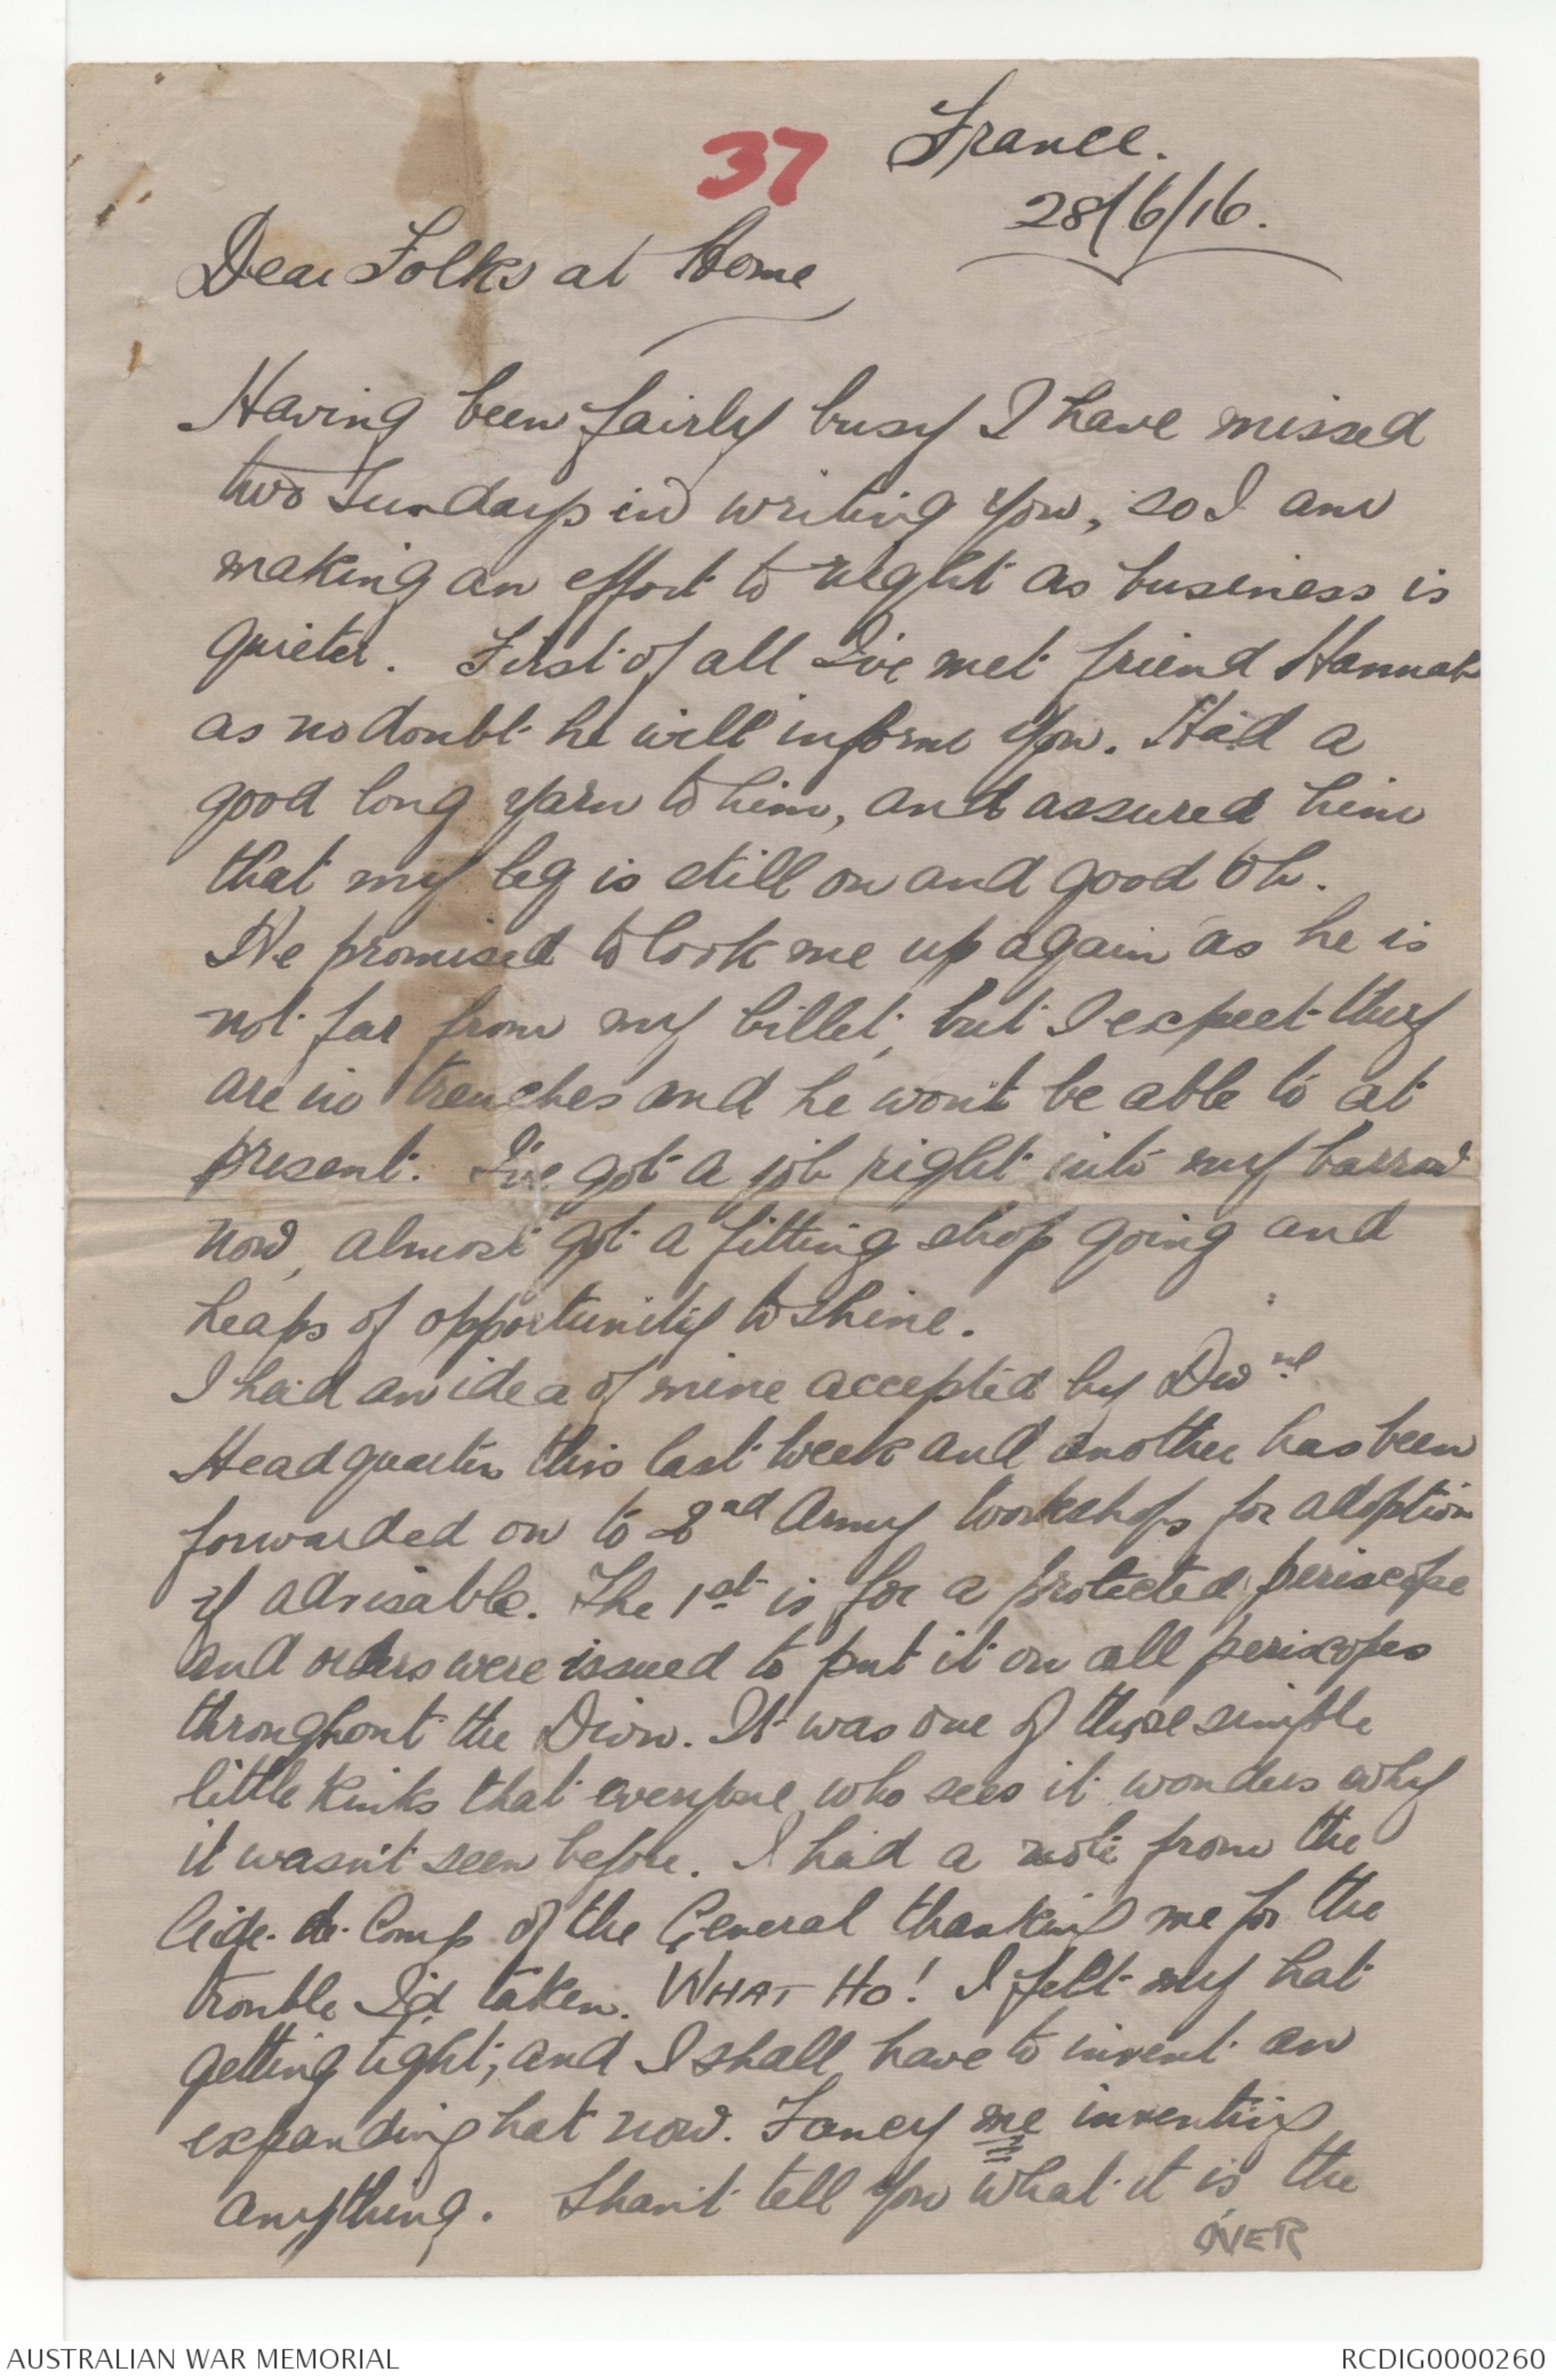 37
France.
28/6/16.
Dear Folks at Home
Having been fairly busy I have missed
two Sundays in writing you, so I am
making an effort to night as business is
quieter. First of all I've met friend Hannah
as no doubt he will inform you. Had a
good long yarn to him, and assured him
that my leg is still on and good oh.
He promised to look me up again as he is
not far from my billet, but I expect they
are in trenches and he won't be able to at
present. I've got a job right into my barrow
now, almost got a fitting shop going and
heaps of opportunity to shine.
I had an idea of mine accepted by Divnl
Headquarters this last week and another has been
forwarded on to 2nd Army Workshops for adoption
if advisable. The 1st is for a protected periscope
and orders were issued to put it on all periscopes
throughout the Divn. It was one of those simple
little kinks that everyone who sees it wonders why
it wasn't seen before. I had a note from the
Aide-de-Camp of the General thanking me for the
trouble I'd taken. WHAT HO! I felt my hat
getting tight; and I shall have to invent an
expanding hat now. Fancy me inventing
anything. Shan't tell you what it is the
OVER
AUSTRALIAN WAR MEMORIAL
RCDIG0000260